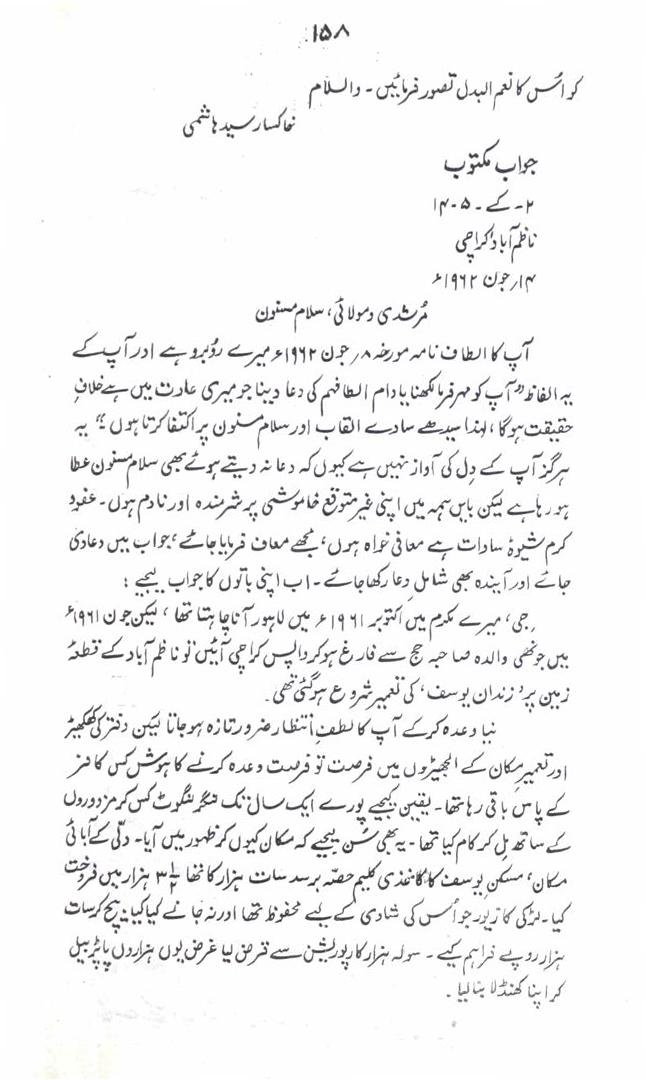 ۱۵۸
کر اُس کا نعم البدل تصور فرمائیں۔ والسلام
خاکسار سید ہاشمی
جواب مکتوب
۲۔ کے۔ ۵۔ ۱۴
ناظم آباد کراچی
۱۴؍ جون ۱۹۶۲ء
مُرشدی و مولائی، سلام مسنون
آپ کا الطاف نامہ مورخہ ۸؍ جون ۱۹۶۲ء میرے رُوبرو ہے اور آپ کے
یہ الفاظ "آپ کو مہر فرما لکھنا یا دام الطافہم کی دعا دینا جو میری عادت میں ہے خلافِ
حقیقت ہوگا، لہٰذا سیدھے سادے القاب اور سلام مسنون پر اکتفا کرتا ہوں" یہ
ہرگز آپ کے دل کی آواز نہیں ہے کیوں کہ دعا نہ دیتے ہوئے بھی سلام مسنون عطا
ہو رہا ہے لیکن بایں ہمہ میں اپنی غیر متوقع خاموشی پر شرمندہ اور نادم ہوں۔ عفو و
کرم شیوۂ سادات ہے معافی خواہ ہوں، مجھے معاف فرمایا جائے، جواب میں دعا دی
جائے اور آیندہ بھی شاملِ دعا رکھا جائے۔ اب اپنی باتوں کا جواب لیجیے:
جی، میرے مکرم میں اکتوبر ۱۹۶۱ء میں لاہور آنا چاہتا تھا، لیکن جون ۱۹۶۱ء
میں جونھی والدہ صاحبہ حج سے فارغ ہو کر واپس کراچی آئیں تو ناظم آباد کے قطعۂ
زمین پر 'زندان یوسف' کی تعمیر شروع ہو گئی تھی۔
نیا وعدہ کر کے آپ کا لطفِ انتظار ضرور تازہ ہو جاتا لیکن دفتر کی کھکھیڑ
اور تعمیرِ مکان کے الجھیڑوں میں فرصت تو فرصت وعدہ کرنے کا ہوش کس کافر
کے پاس باقی رہا تھا۔ یقین کیجیے پورے ایک سال تک لنگر لنگوٹ کس کر مزدوروں
کے ساتھ مل کر کام کیا تھا۔ یہ بھی سُن لیجیے کہ مکان کیوں کر ظہور میں آیا۔ دلّی کے آبائی
مکان، مسکنِ یوسف کا کاغذی کلیم حصّہ برسد سات ہزار کا تھا ۳½ ہزار میں فروخت
کیا۔ لڑکی کا زیور جو اُس کی شادی کے لیے محفوظ تھا اور نہ جانے کیا کیا بیچ کر سات
ہزار روپے فراہم کیے۔ سولہ ہزار کارپوریشن سے قرض لیا غرض یوں ہزاروں پاپڑ بیل
کر اپنا کھنڈلا بنا لیا۔